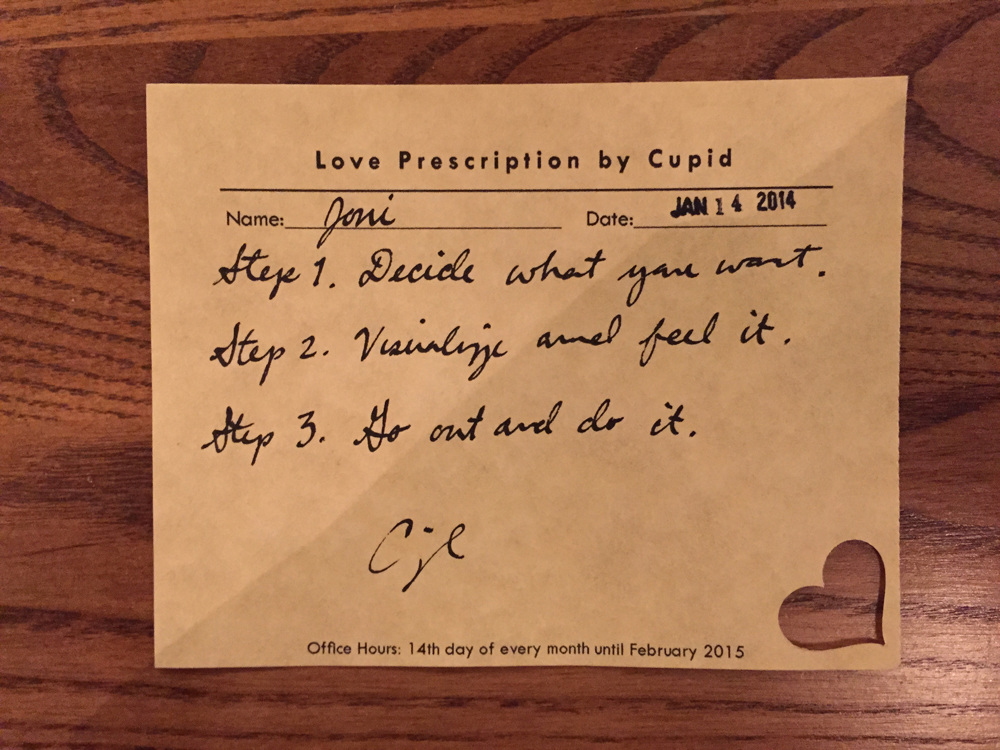 Love Prescription by Cupid
Name: Joni Date: JAN 14 2014
Step 1. Decide what you want.
Step 2. Visualize and feel it.
Step 3. Go out and do it.
Office Hours: 14th day of every month until February 2015